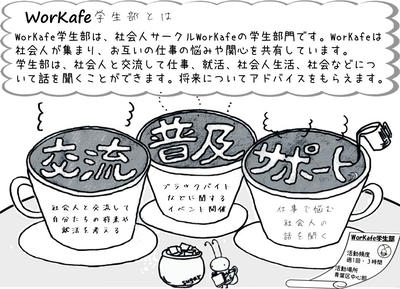 WorKafe学生部とは
WorKafe学生部は、社会人サークルWorKafeの学生部門です。WorKafeは
社会人が集まり、お互いの仕事の悩みや関心を共有しています。
学生部は、社会人と交流して仕事、就活、社会人生活、社会などにつ
いて話を聞くことができます。将来についてアドバイスをもらえます。
交流
社会人と交流して
自分たちの将来や
就活を考える
普及
ブラックバイト
などに関する
イベント開催
サポート
仕事で悩む
社会人の
話を聞く
sugar
WorKafe学生部
活動頻度
週1回・3時間
活動場所
青葉区中心部